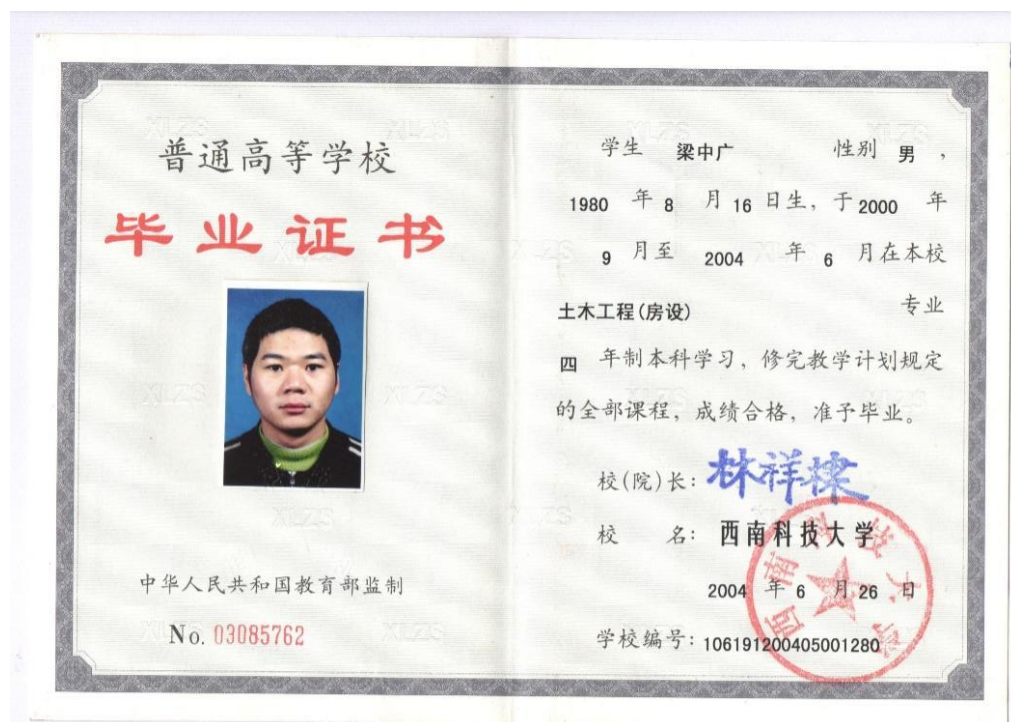 普通高等学校
毕业证书
中华人民共和国教育部监制
No. 03085762
学生 梁中广 性别 男 ,
1980 年 8 月 16 日生, 于 2000 年
9 月至 2004 年 6 月在本校
土木工程(房设) 专业
四 年制本科学习, 修完教学计划规定
的全部课程, 成绩合格, 准予毕业。
校(院)长: 林祥棣
校 名: 西南科技大学
2004 年 6 月 26 日
学校编号: 106191200405001280
西南科技大学